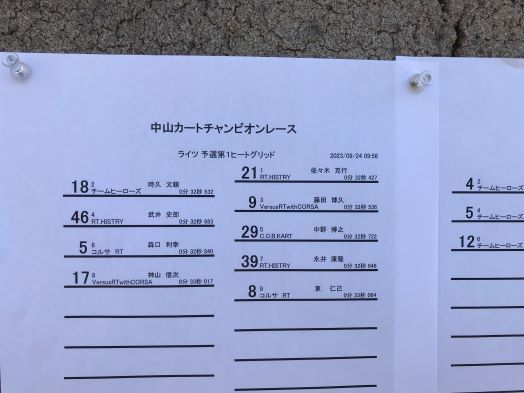 中山カートチャンピオンレース
ライツ 予選第1ヒートグリッド 2023/09/24 09:58
21 1 佐々木 克行
RT.HISTRY 0分 32秒 427
18 2 時久 文毅
チームヒーローズ 0分 32秒 532
9 3 藤田 博久
VersusRTwithCORSA 0分 32秒 536
46 4 武井 史郎
RT.HISTRY 0分 32秒 683
29 5 中野 博之
C.O.B.KART 0分 32秒 722
5 6 森口 利幸
コルサ RT 0分 32秒 840
39 7 永井 康隆
RT.HISTRY 0分 32秒 946
17 8 神山 信次
VersusRTwithCORSA 0分 33秒 017
8 9 東 仁己
コルサ RT 0分 33秒 064
4 2
チームヒーローズ
5 4
チームヒーローズ
12 6
チームヒーローズ